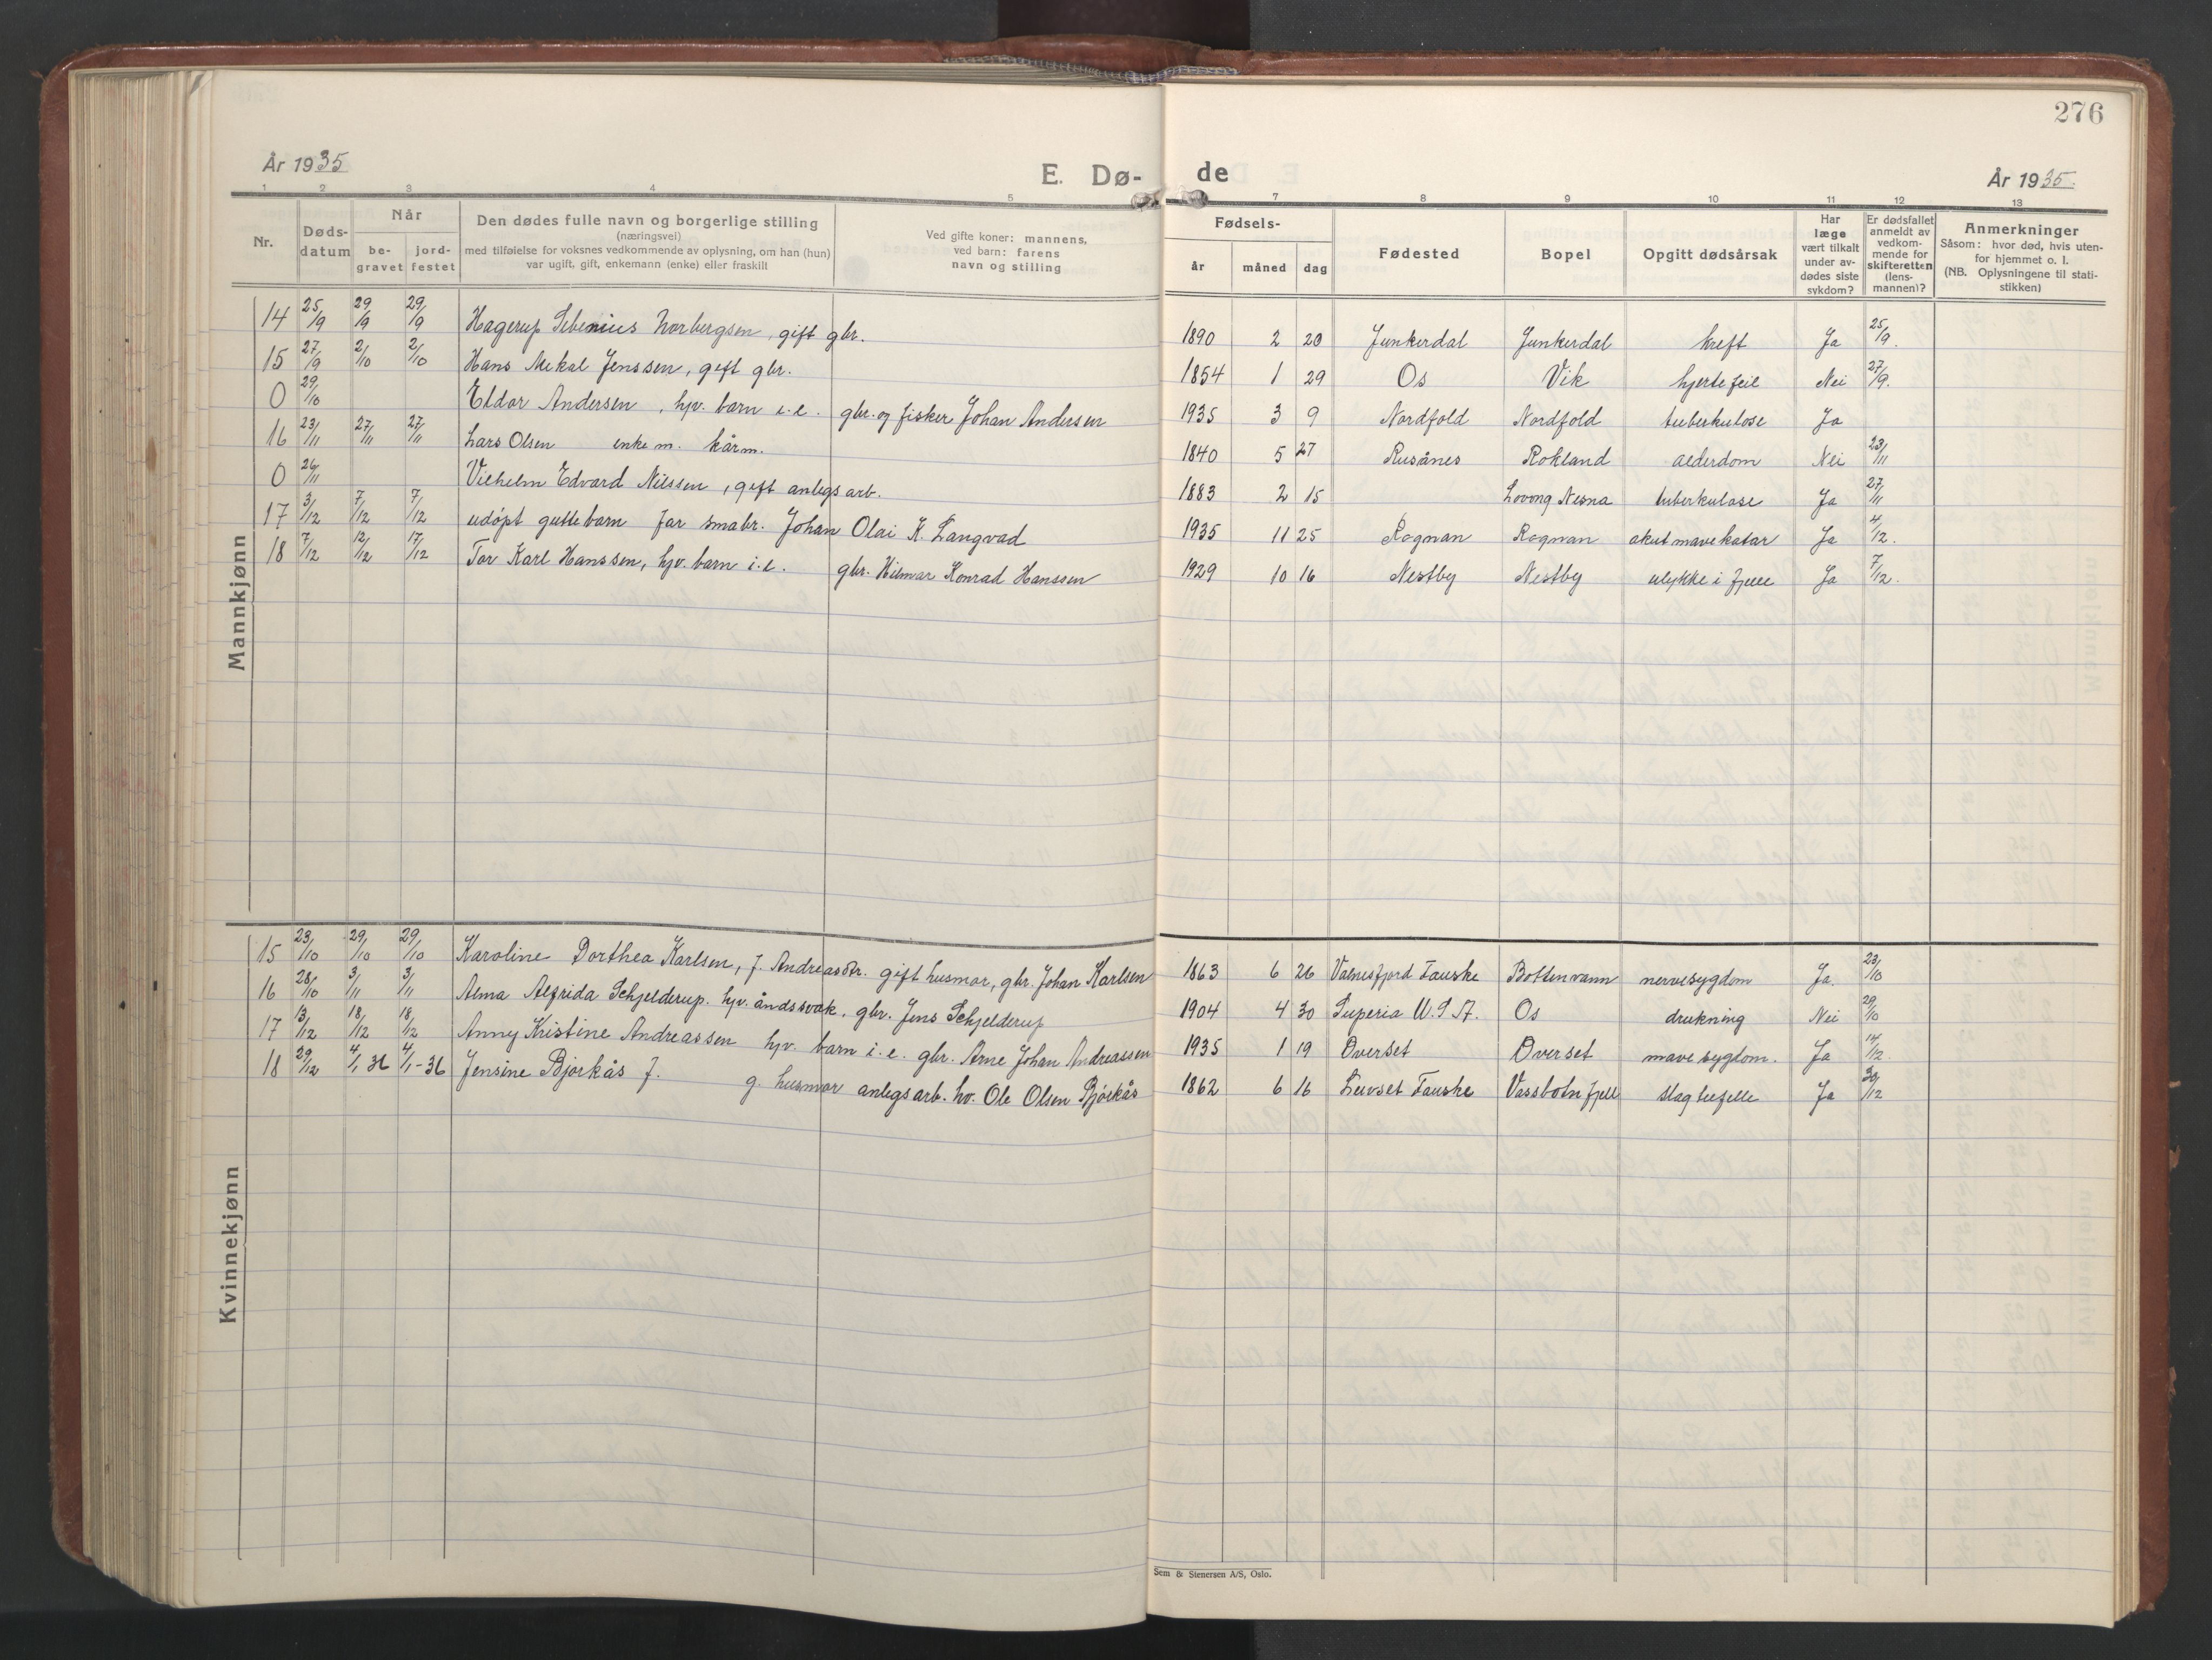 276
År 1935
E. Dø-
de
År 1935.
1 2 3 4 5 7 8 9 10 11 12 13
Nr.
Døds-
datum
Når
be-
gravet
jord-
festet
Den dødes fulle navn og borgerlige stilling
(næringsvei)
med tilføielse for voksnes vedkommende av oplysning, om han (hun)
var ugift, gift, enkemann (enke) eller fraskilt
Ved gifte koner: mannens,
ved barn: farens
navn og stilling
Fødsels-
år måned dag
Fødested
Bopel
Opgitt dødsårsak
Har
læge
vært tilkalt
under av-
dødes siste
sykdom?
Er dødsfallet
anmeldt av
vedkom-
mende for
skifteretten
(lens-
mannen)?
Anmerkninger
Såsom: hvor død, hvis uten-
for hjemmet o. l.
(NB. Oplysningene til stati-
stikken)
Mannkjønn
14 25/9 29/9 29/9 Hagerup Norbergsen, gift gbr. 1890 2 20 Junkerdal Junkerdal kreft Ja 25/9.
15 27/9 2/10 2/10 Hans Mikal Jenssen, gift gbr. 1854 1 29 Os Vik hjertefeil Nei 27/9.
0 29/10 Eldar Andersen, hjv. barn i.e. gbr. og fisker Johan Andersen 1935 3 9 Nordfold Nordfold tuberkulose Ja
16 23/11 27/11 27/11 Lars Olsen enkem. kårm. 1840 5 27 Rusånes Rokland alderdom Nei 23/11
0 26/11 Vilhelm Edvard Nilssen, gift anlegsarb. 1883 2 15 Lovong Nesna tuberkulose Ja 27/11
17 3/12 7/12 7/12 udøpt guttebarn far smabr. Johan Olai K. Langvad 1935 11 25 Rognan Rognan akut mavekatar Ja 4/12.
18 7/12 12/12 17/12 Tor Karl Hanssen, hjv. barn i.e. gbr. Hilmar Konrad Hanssen 1929 10 16 Nestby Nestby ulykke i fjell Ja 7/12.
Kvinnekjønn
15 23/10 29/10 29/10 Karoline Dorthea Karlsen, f. Andreasdtr. gift husmor, gbr. Johan Karlsen 1863 6 26 Valnesfjord Fauske Bottenvann nervesygdom Ja. 23/10
16 28/10 3/11 3/11 Alma Alfrida Schjelderup. hjv. åndssvak, gbr. Jens Schjelderup 1904 4 30 Superia U.S.A. Os drukning Nei 29/10
17 13/12 18/12 18/12 Anny Kristine Andreassen hjv. barn i.e. gbr. Arne Johan Andreassen 1935 1 19 Øverset Øverset mavesygdom. Ja 14/12
18 29/12 4/1 36 4/1-36 Jensine Bjørkås f. g. husmor anlegsarb. hv. Ole Olsen Bjørkås 1862 6 16 Leivset Fauske Vassbotnfjell slagtilfelle Ja 30/12
Sem & Stenersen A/S, Oslo.